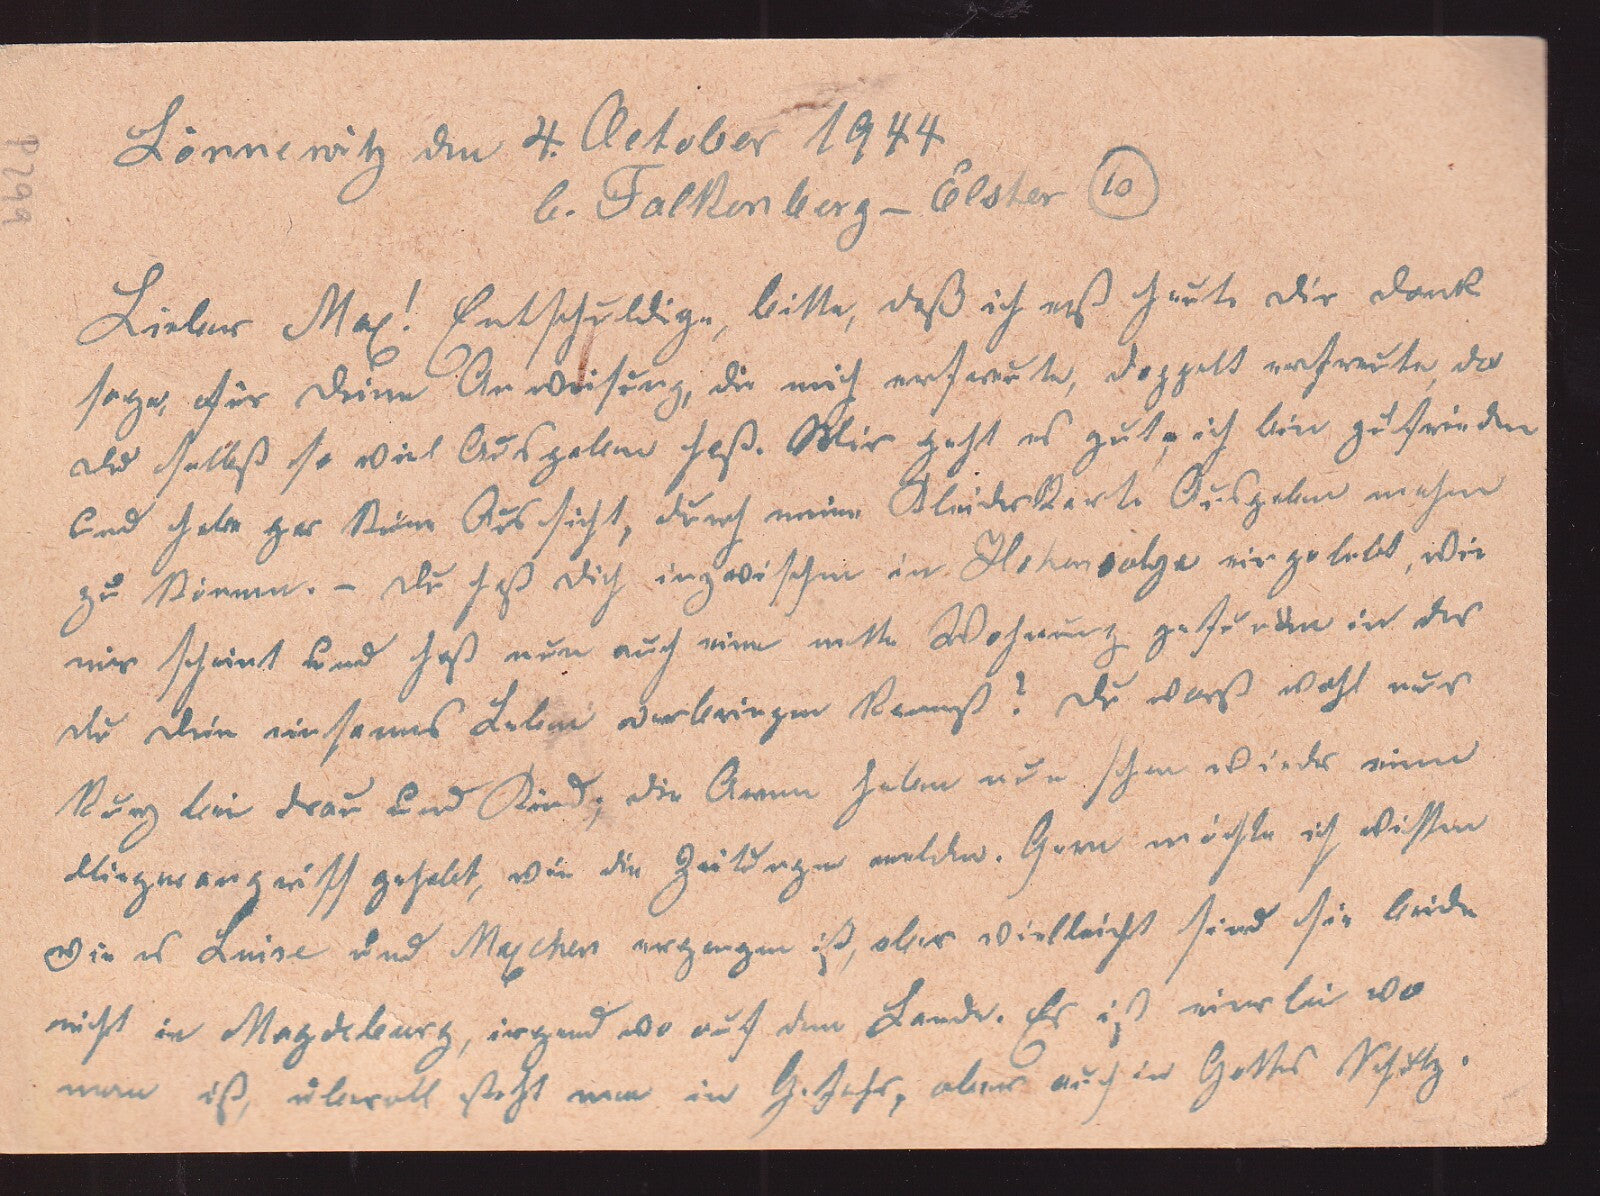 Lönnewitz den 4. October 1944
b. Falkenberg-Elster (10)
Lieber Max! Entschuldige, bitte, daß ich erst heute Dir Dank
sage, für Deine Anweisung, die mich erfreute, doppelt erfreute, da
Du selbst so viel Ausgaben hast. Mir geht es gut, ich bin zufrieden
und habe gar keine Aussicht, durch meine Kleiderkarte Ausgaben machen
zu können. – Du hast Dich inzwischen in Hohensalza eingelebt, wie
mir scheint und hast nun auch eine nette Wohnung gefunden in der
Du Dein einsames Leben verbringen kannst? Du warst wohl nur
kurz bei Frau und Kind, die Armen haben nun schon wieder einen
Fliegerangriff gehabt, wie die Zeitungen melden. Gern möchte ich wissen
wie es Luise und Maxchen ergangen ist, aber vielleicht sind sie beide
nicht in Magdeburg, irgendwo auf dem Lande. Es ist einerlei wo
man ist, überall steht man in Gefahr, aber auch in Gottes Schutz.
P299